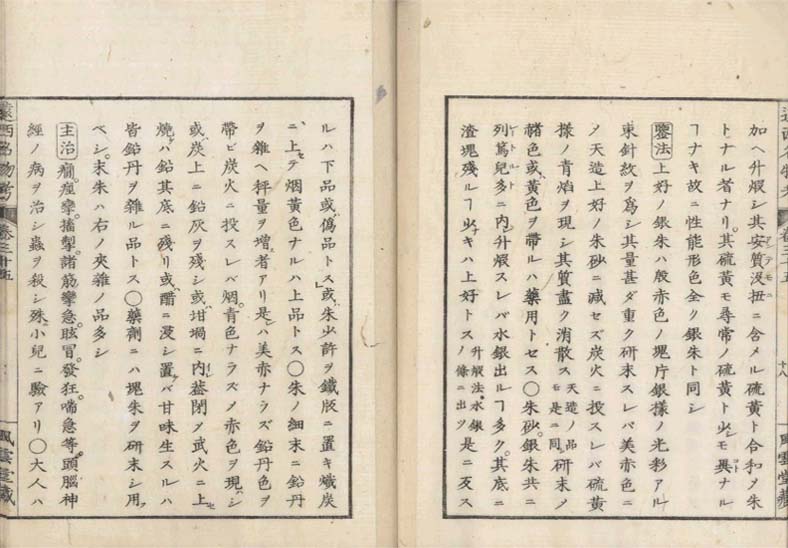 加ヘ升煅シ其安質没扭ニ含メル硫黄ト合和メ朱
トナル者ナリ。其硫黄モ尋常ノ硫黄ト少シモ異ナル
ヿナキ故ニ性能形色全ク銀朱ト同シ
鑒法 上好ノ銀朱ハ殷赤色ノ塊片銀様ノ光彩アル
束針紋ヲ爲シ其量甚ダ重ク研末スレバ美赤色ニ
メ天造上好ノ朱砂ニ減セズ炭火ニ投スレバ硫黄
様ノ青焰ヲ現シ其質盡ク消散ス天造ノ品モ是ニ同シ研末ノ
赭色或ハ黄色ヲ帶ルハ藥用トセス〇朱砂。銀朱共ニ
列篤兒多ニ内レ升煅スレバ水銀出ルヿ多ク。其底ニ
渣塊残ルヿ少ナキハ上好トス升煅法ハ水銀ノ條ニ出ツ是ニ反ス
ルハ下品或ハ僞品トス」或ハ朱少許ヲ鐵版ニ置キ熾炭
ニ上セテ烟黄色ナルハ上品トス〇朱ノ細末ニ鉛丹
ヲ雜ヘ秤量ヲ増ス者アリ是レハ美赤ナラズ鉛丹色ヲ
帶ビ炭火ニ投スレバ烟。青色ナラズメ赤色ヲ現シ
或ハ炭上ニ鉛灰ヲ残シ或ハ坩堝ニ内レ蓋閉メ武火ニ上セ
燒ハ鉛其底ニ残リ或ハ醋ニ浸シ置ケバ甘味生スルハ
皆鉛丹ヲ雜ル品トス〇藥劑ニハ塊朱ヲ研末シ用フ
ベシ。末朱ハ右ノ夾雜ノ品多シ
主治 癇。痙攣。搐掣。諸筋攣急。眩冒。發狂。喘急等。頭腦神
經ノ病ヲ治シ蟲ヲ殺シ殊ニ小兒ニ驗アリ〇大人ハ
遠西名物考
卷三十五
十八
風雲堂藏
遠西名物考
卷三十五
風雲堂藏